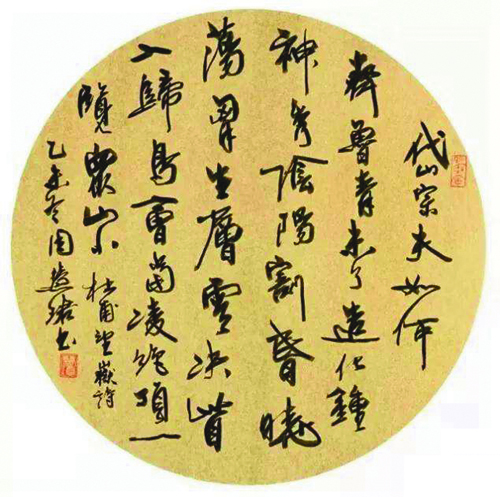 岱宗夫如何
齊魯青未了造化鍾
神秀陰陽割昏曉
蕩胷生層雲決眥
入歸鳥會當凌絕頂一
覽眾山小 杜甫望嶽詩
乙未冬周燕书